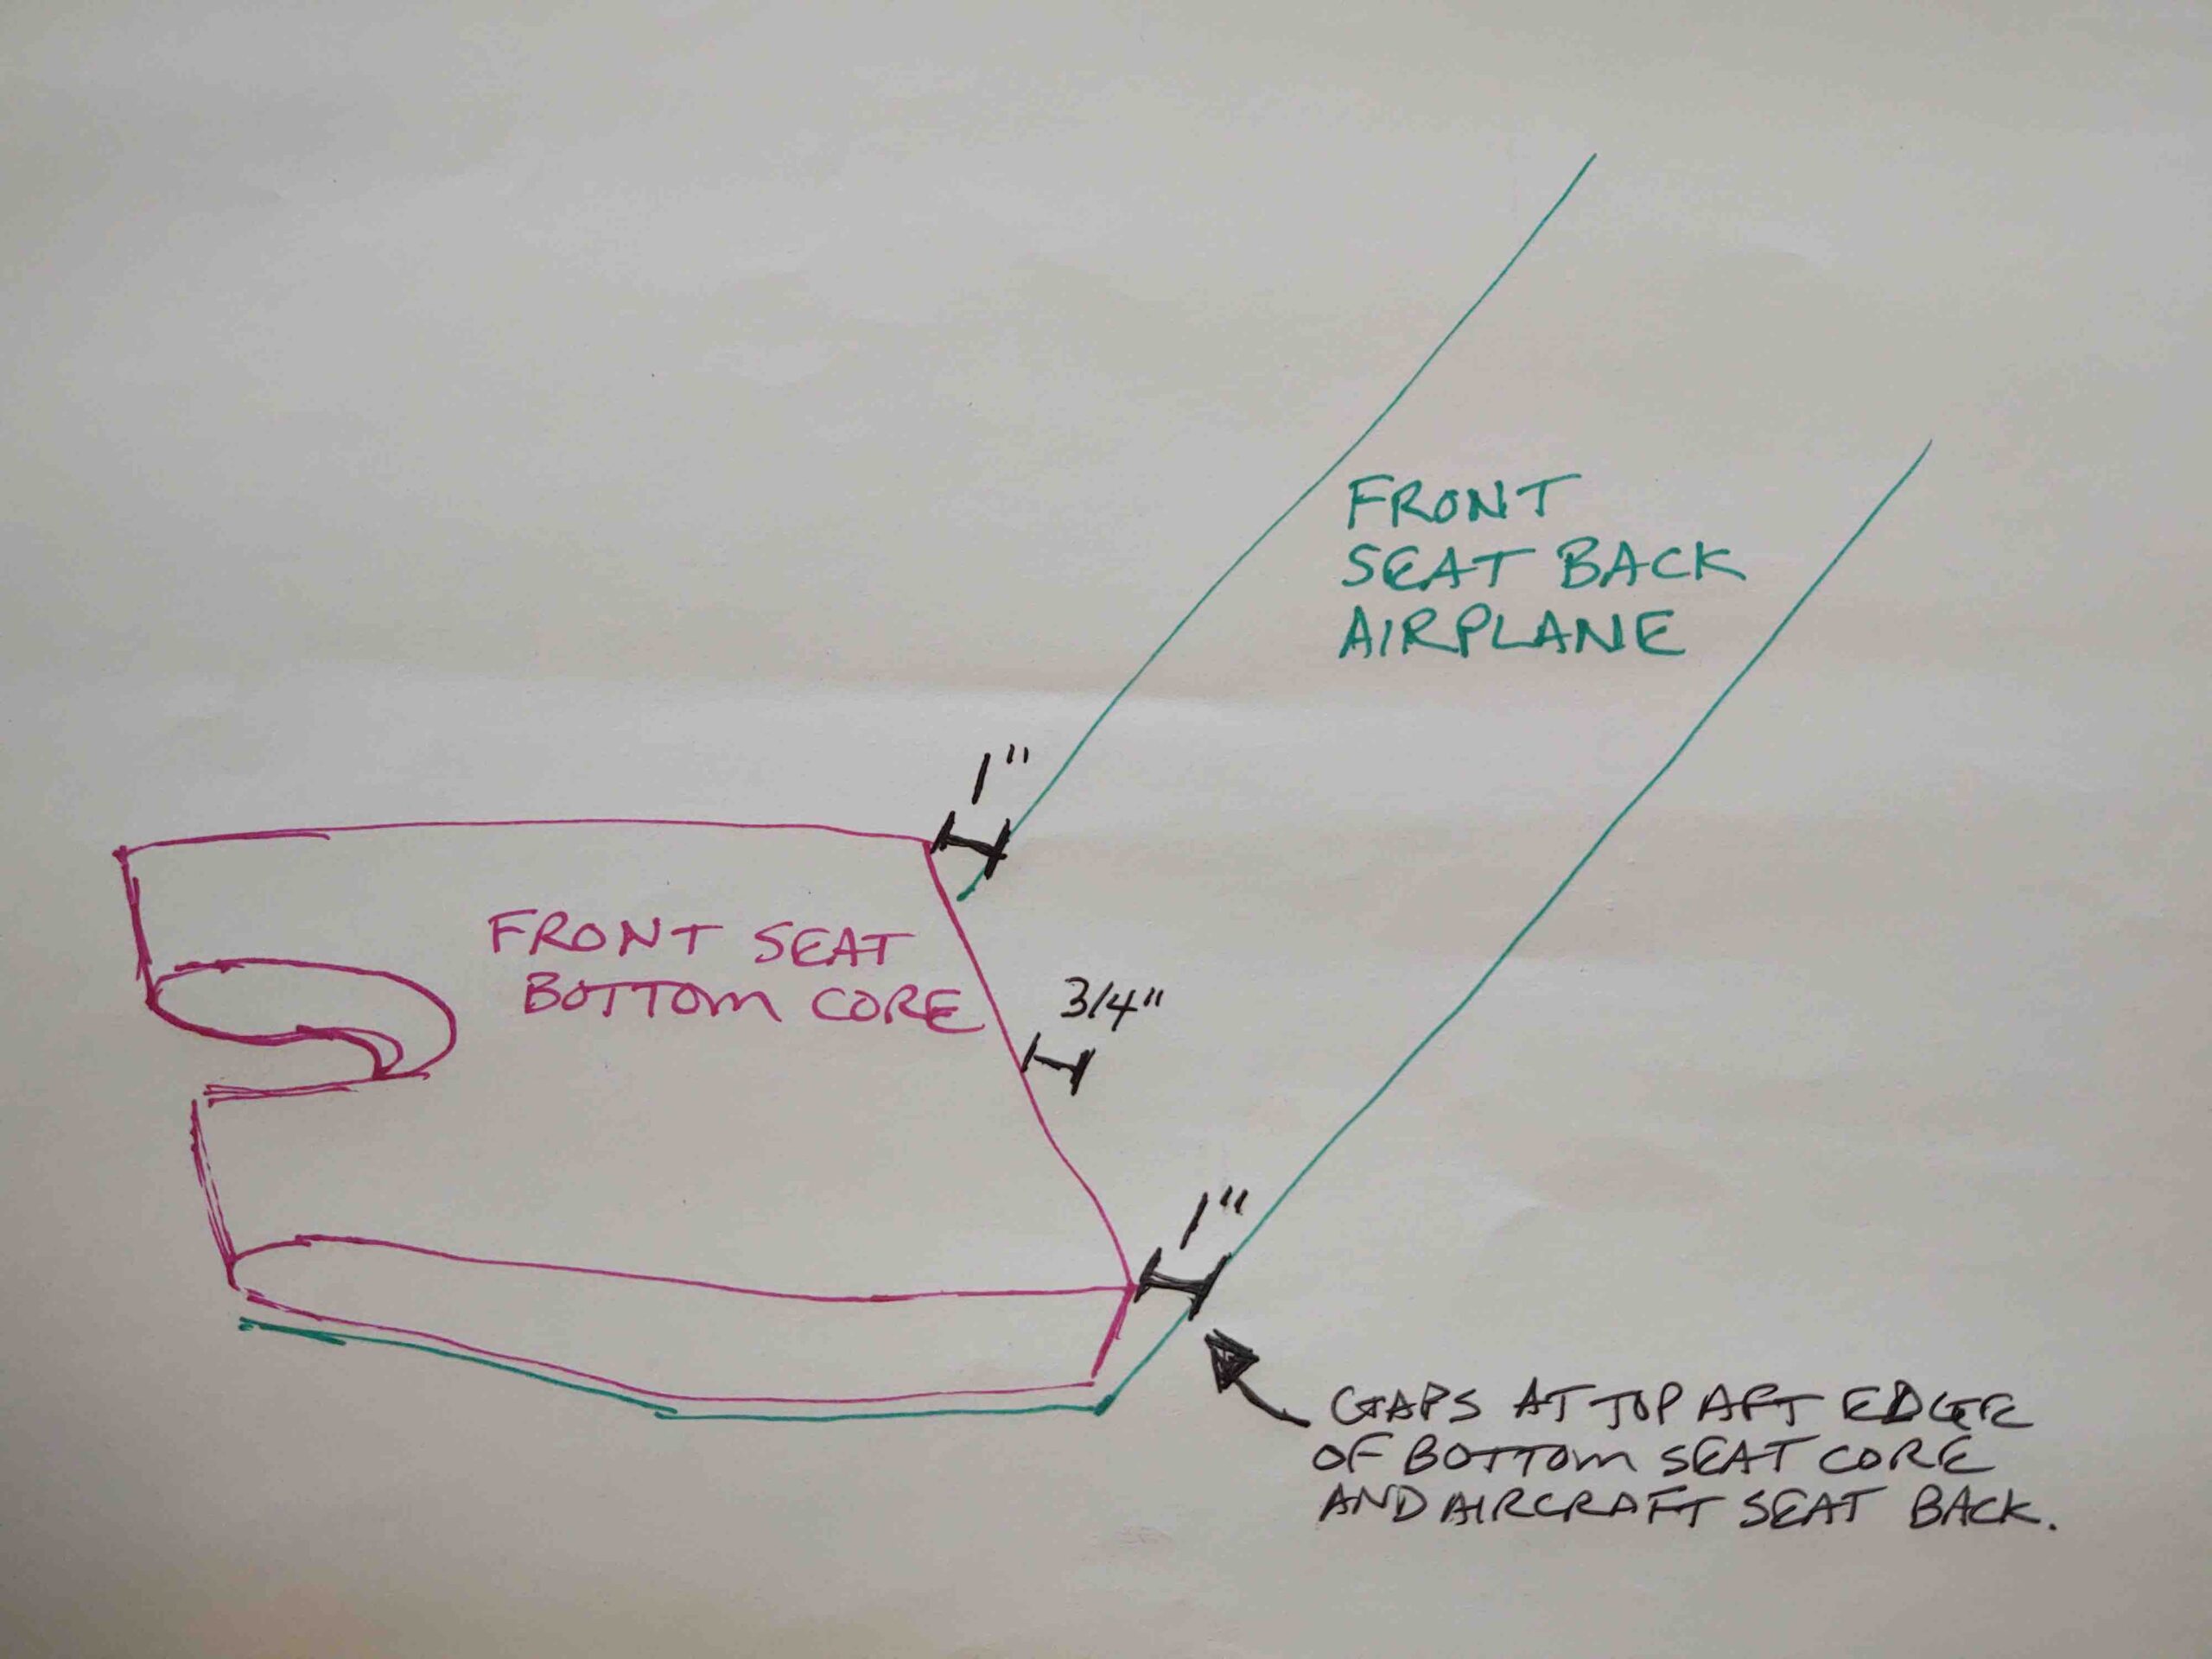 FRONT
SEAT BACK
AIRPLANE
1"
FRONT SEAT
BOTTOM CORE
3/4"
1"
GAPS AT TOP AFT EDGE
OF BOTTOM SEAT CORE
AND AIRCRAFT SEAT BACK.